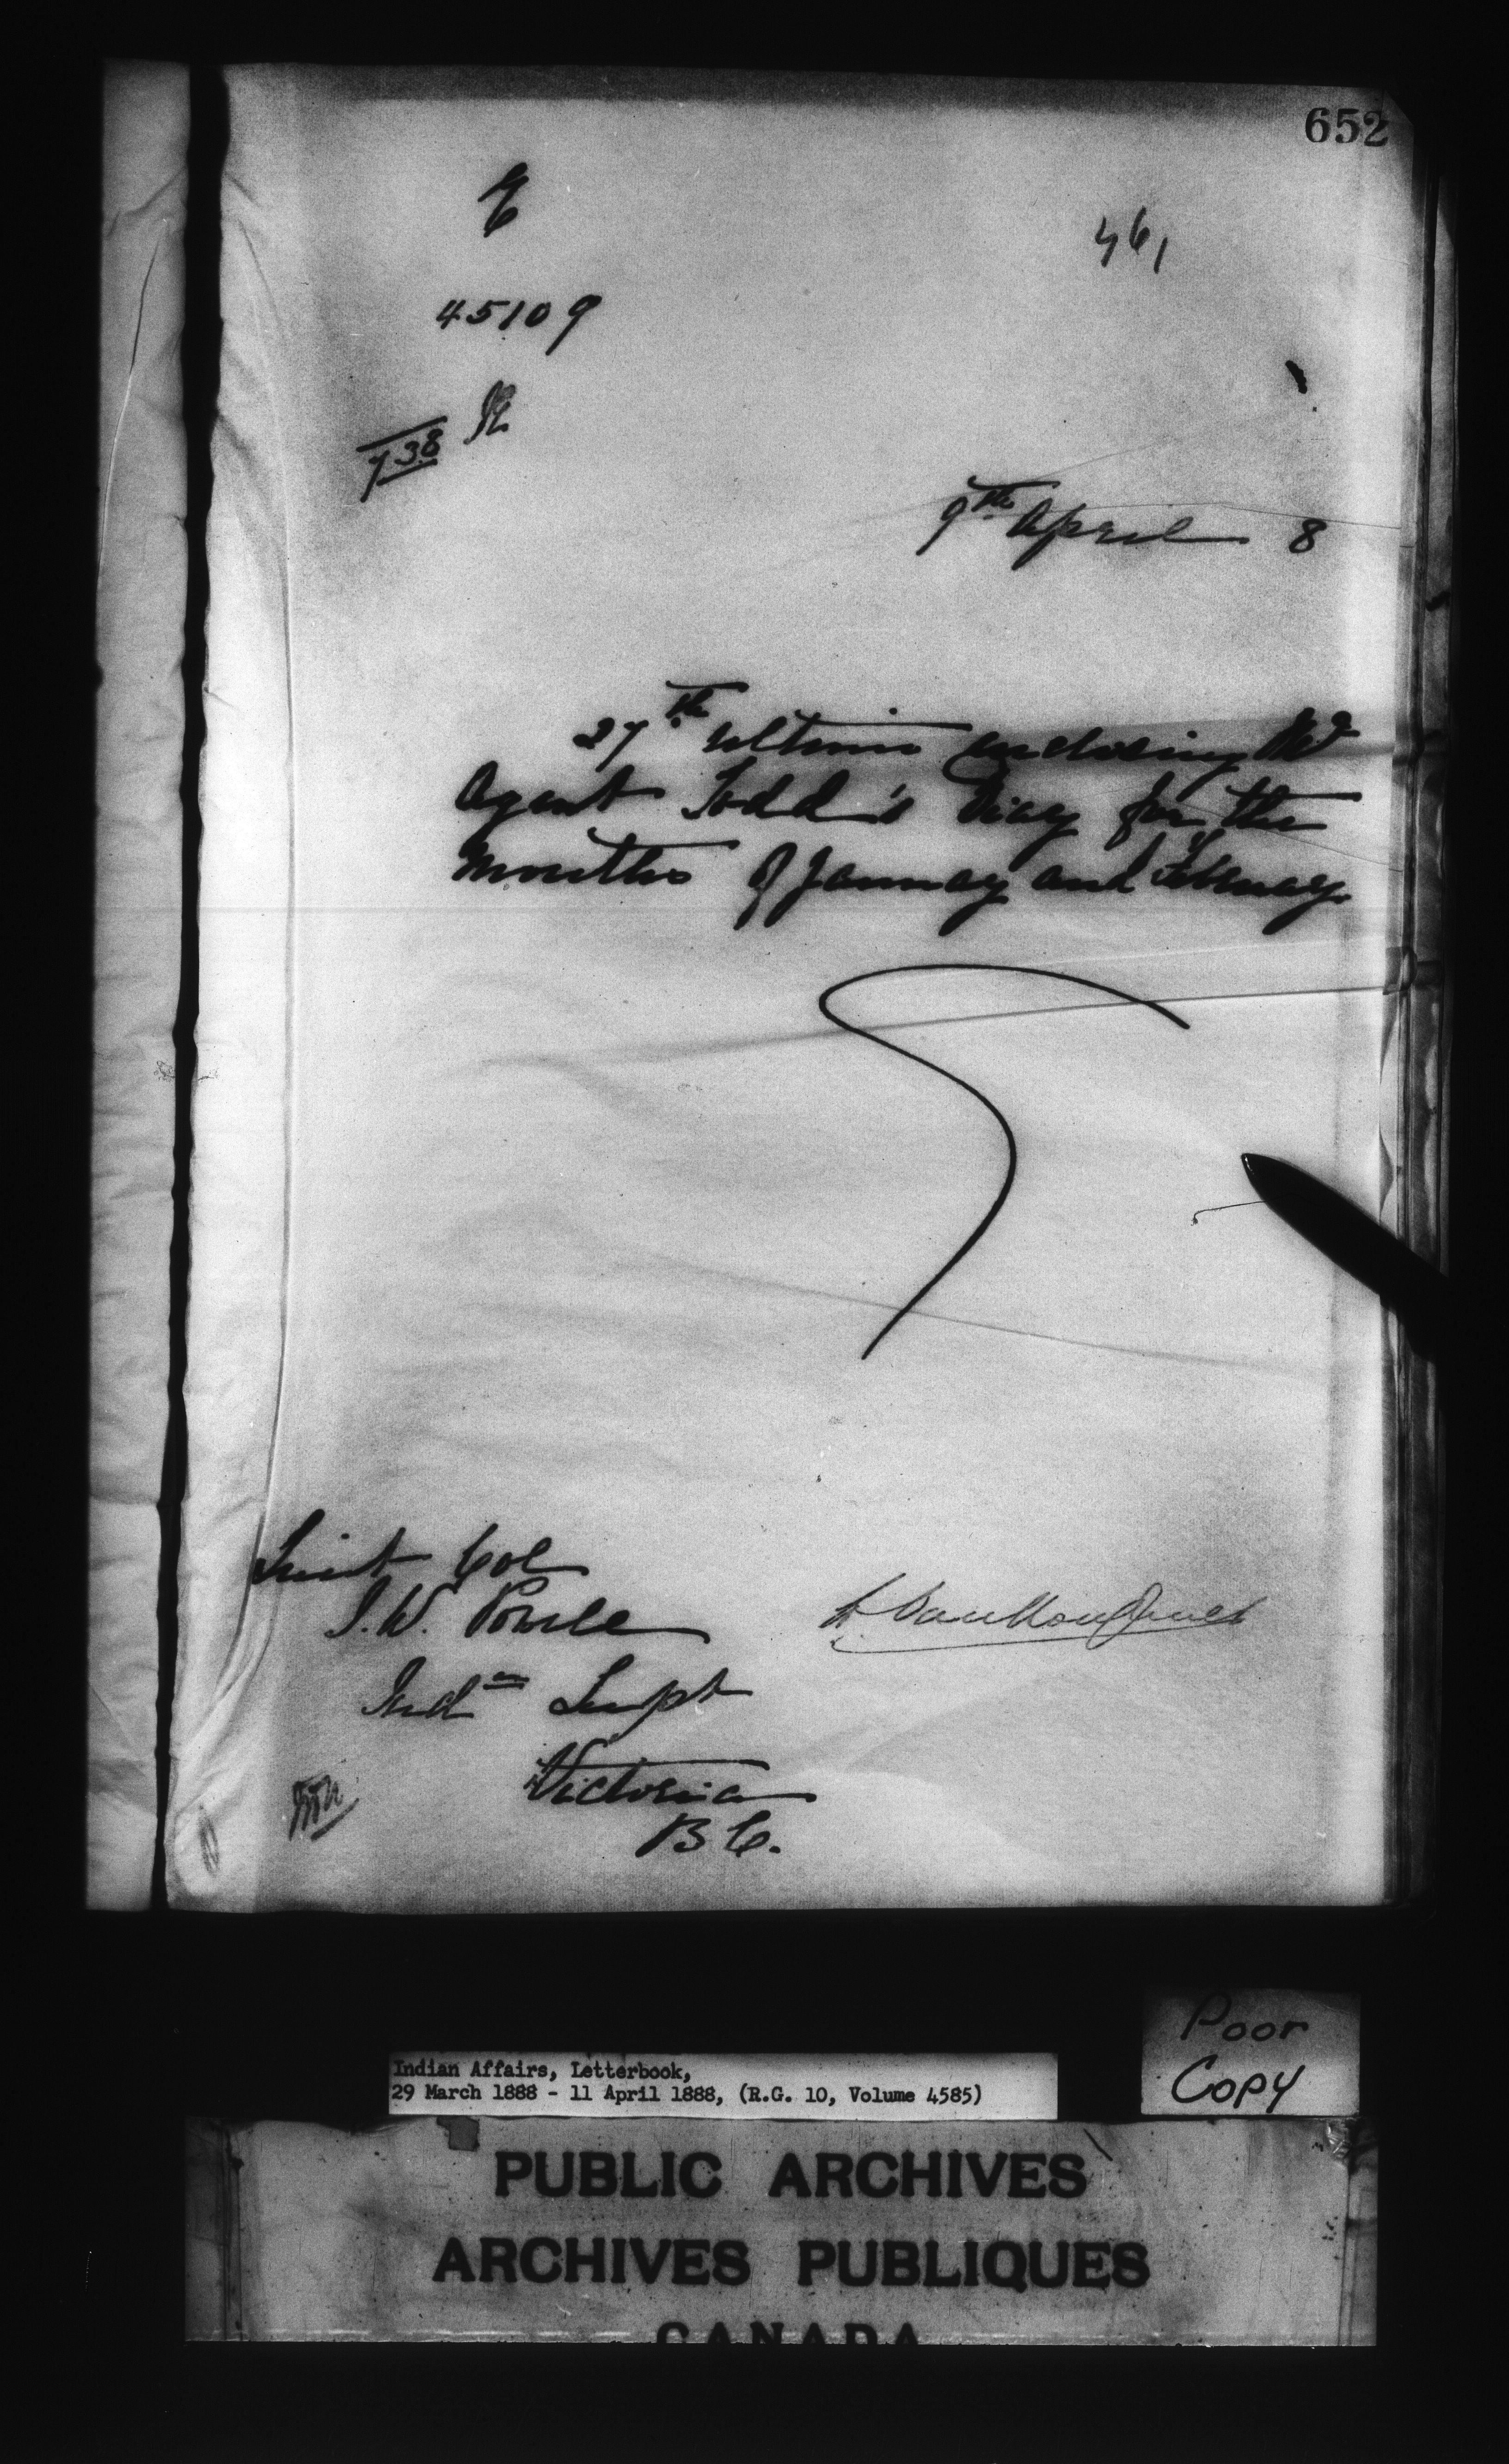 652
461
45109
738
9th April 8
27th ultimo enclosing Mr
Agent Todd's Diary for the
months of January and February
Lieut Col
I. W. Powell
Indn Supt
L. Vankoughnet
Victoria
B C.
Poor
Copy
Indian Affairs, Letterbook,
29 March 1888 - 11 April 1888, (R.G. 10, Volume 4585)
PUBLIC ARCHIVES
ARCHIVES PUBLIQUES
CANADA